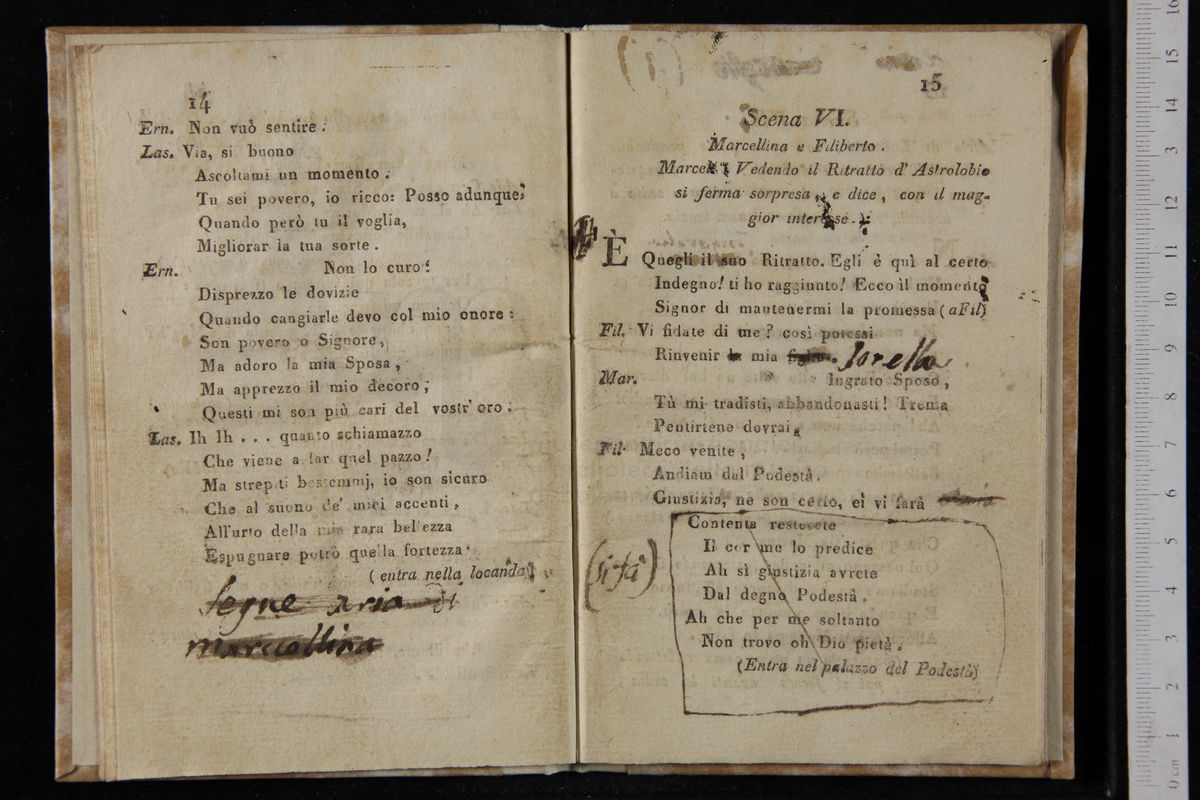 14
Ern. Non vuò sentire.
Las. Via, si buono
Ascoltami un momento.
Tu sei povero, io ricco: Posso adunque,
Quando però tu il voglia,
Migliorar la tua sorte.
Ern. Non lo curo!
Disprezzo le dovizie
Quando cangiarle devo col mio onore:
Son povero o Signore,
Ma adoro la mia Sposa,
Ma apprezzo il mio decoro;
Questi mi son più cari del vostr' oro.
Las. Ih Ih . . . quanto schiamazzo
Che viene a far quel pazzo!
Ma strepiti bestemmj, io son sicuro
Che al suono de' miei accenti,
All'urto della mia rara bellezza
Espugnare potrò quella fortezza.
(entra nella locanda)
segue aria di
marcellina
(1)
15
Scena VI.
Marcellina e Filiberto.
Marcel. Vedendo il Ritratto d' Astrolobio
si ferma sorpresa, e dice, con il mag-
gior interesse.
È Quegli il suo Ritratto. Egli è quì al certo
Indegno! ti ho raggiunto! Ecco il momento
Signor di mantenermi la promessa (a Fil)
Fil. Vi fidate di me? così potessi
Rinvenir la mia figlia. Sorella
Mar. Ingrato Sposo,
Tù mi tradisti, abbandonasti! Trema
Pentirtene dovrai,
Fil. Meco venite,
Andiam dal Podestà.
Giustizia, ne son certo, ei vi farà
Contenta resterete
Il cor me lo predice
(si fà)
Ah sì giustizia avrete
Dal degno Podestà.
Ah che per me soltanto
Non trovo oh Dio pietà.
(Entra nel palazzo del Podestà)